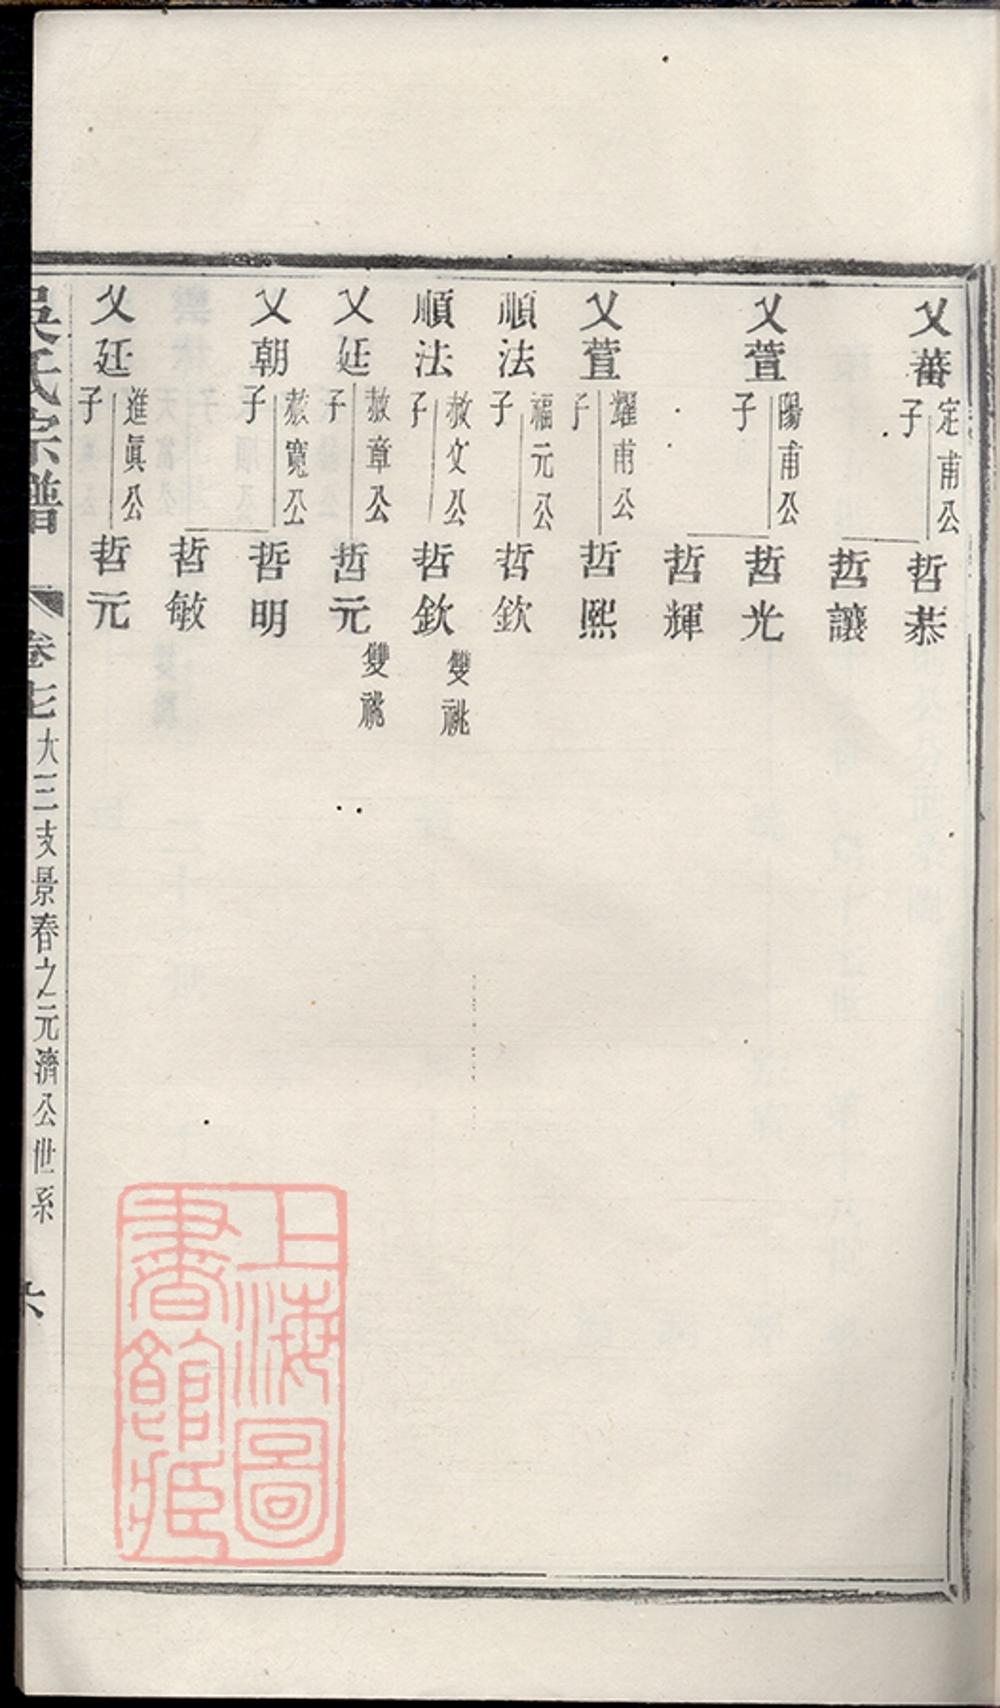 父蕃 定甫公子 哲恭
哲讓
父萱 陽甫公子 哲光
哲輝
父萱 耀甫公子 哲熙
順法 福元公子 哲欽
順法 敖文公子 哲欽 雙祧
父廷 敖章公子 哲元 雙祧
父朝 敖寬公子 哲明
哲敏
父廷 進眞公子 哲元
吳氏宗譜 卷七 大三支景春之元濟公世系 六
上海圖
書館藏